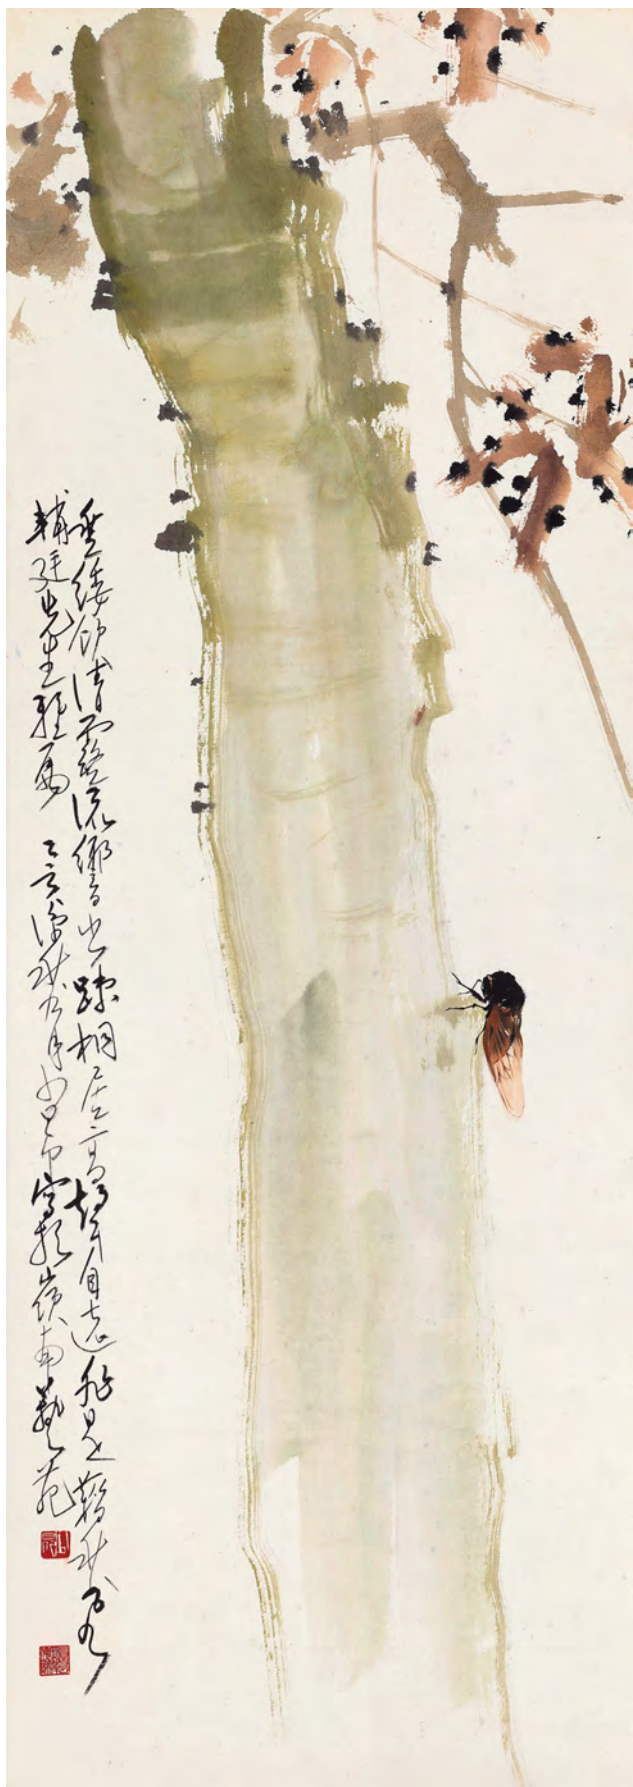 垂緌飲清露流響出疎桐居高聲自遠非是藉秋風
輔廷先生雅屬 亥深秋九月少昂寫於嶺南藝苑